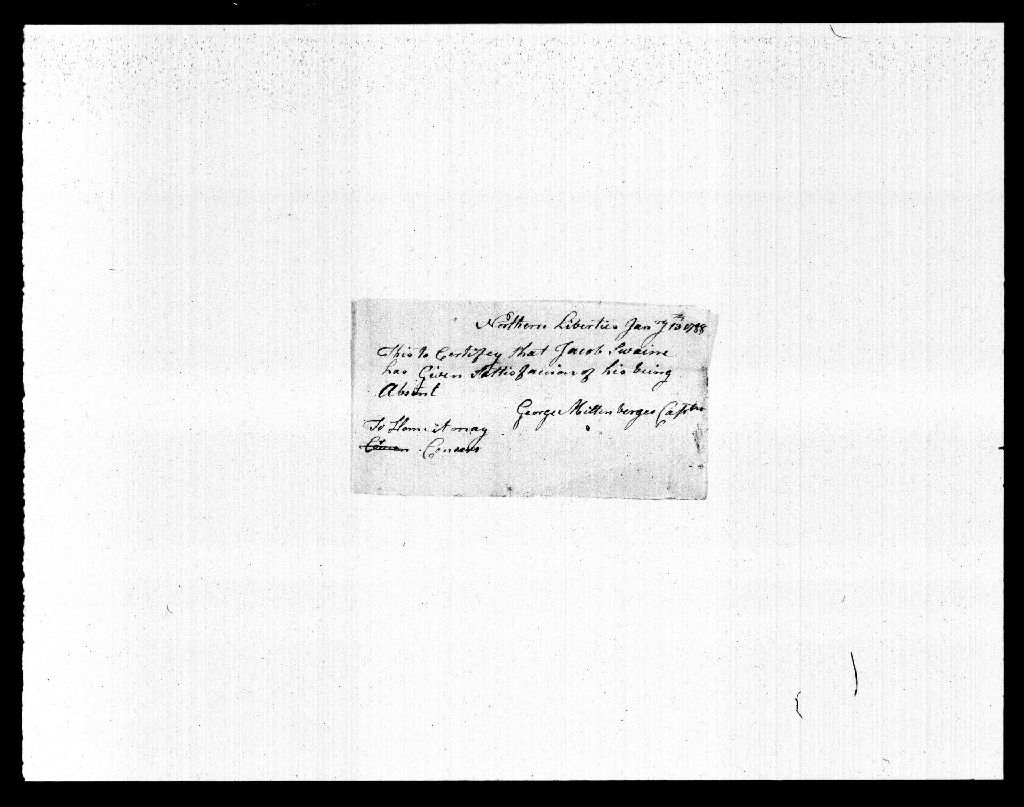 Northern Liberties Jany 13th 1788
This to Certifey that Jacob Swaim
has Given Sattisfaccion of his being
Absent
George Miltenberger Captn
To Hom it may
Concern